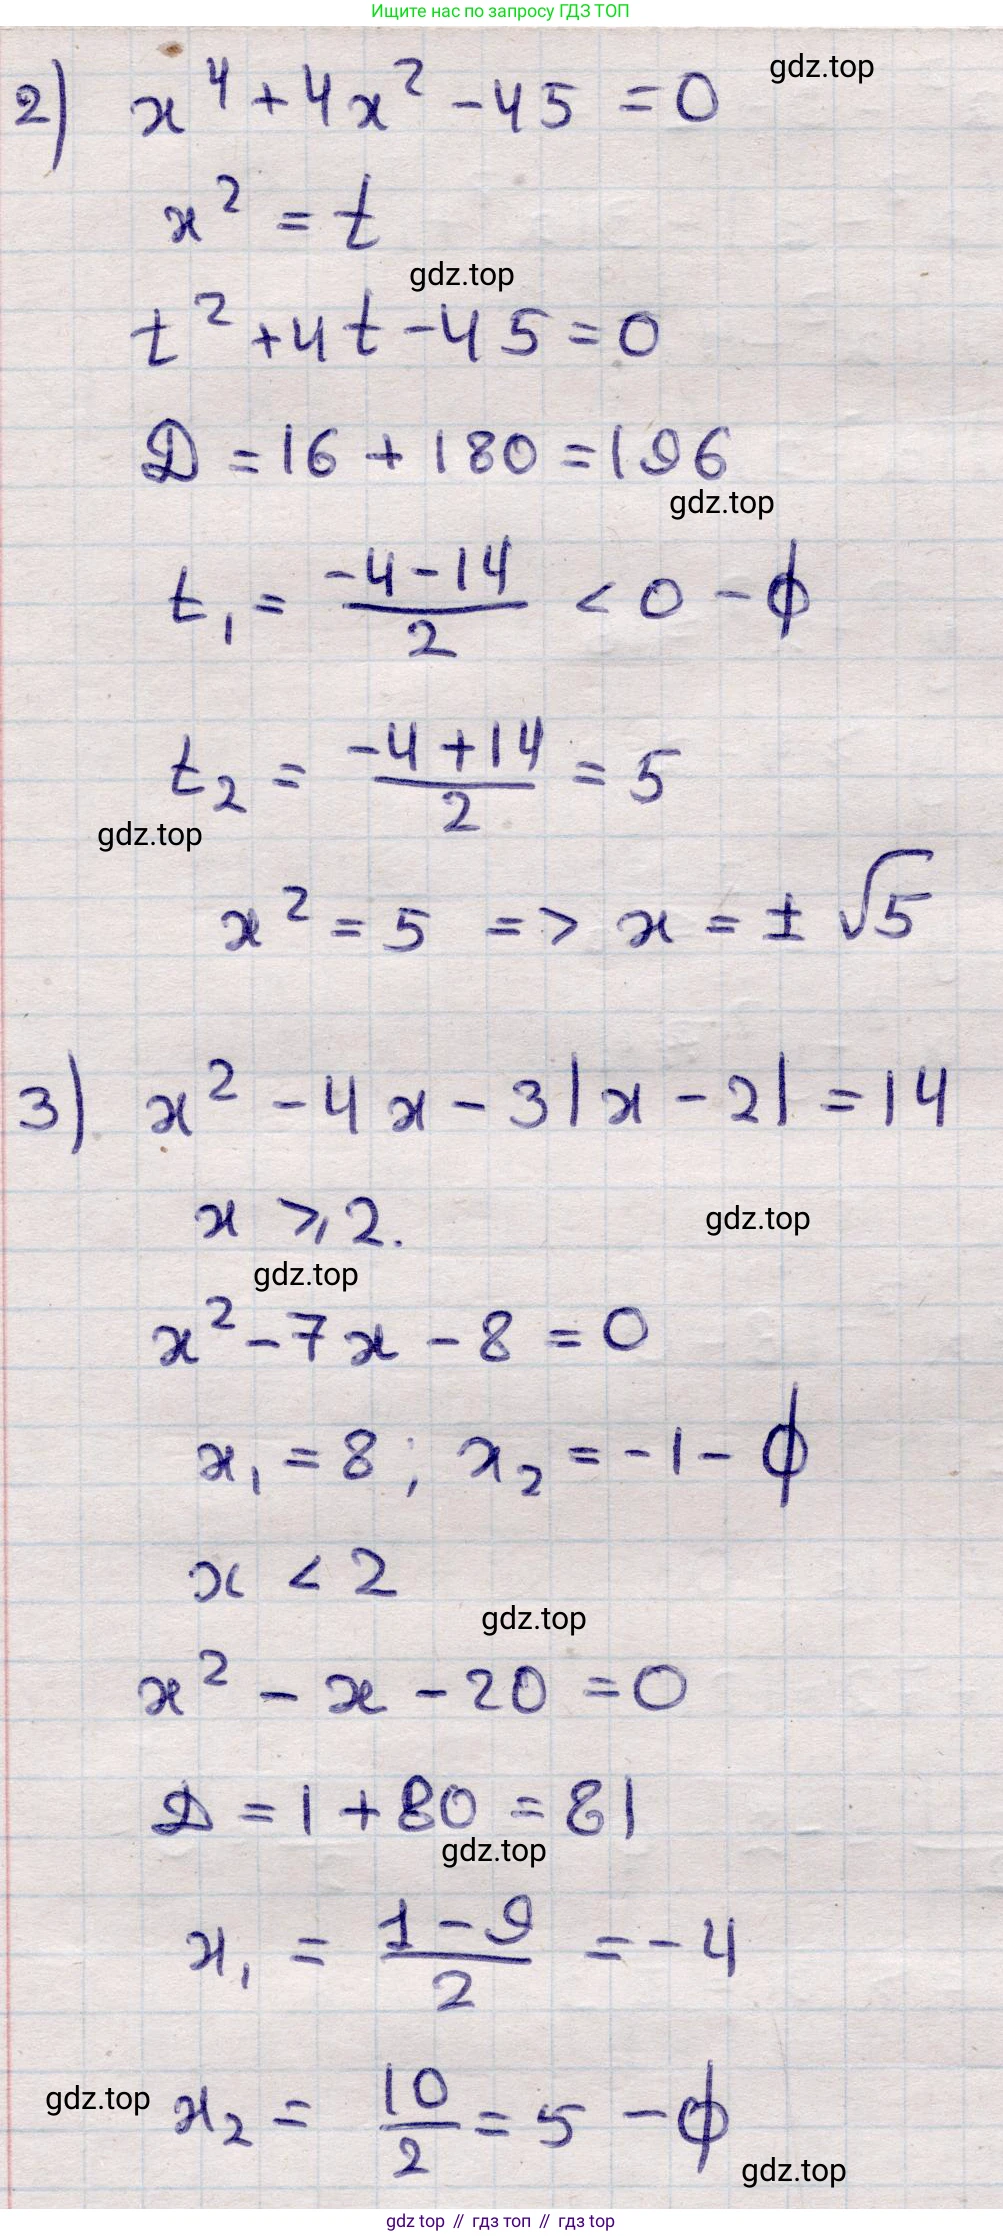 Ищите нас по запросу ГДЗ ТОП
2) x⁴ + 4x² - 45 = 0
gdz.top
x² = t
gdz.top
t² + 4t - 45 = 0
D = 16 + 180 = 196
gdz.top
t₁ = (-4-14)/2 < 0 - ϕ
t₂ = (-4+14)/2 = 5
gdz.top
x² = 5 => x = ± √5
3) x² - 4x - 3|x - 2| = 14
x ⩾ 2.
gdz.top
gdz.top
x² - 7x - 8 = 0
x₁ = 8; x₂ = -1 - ϕ
x < 2
gdz.top
x² - x - 20 = 0
D = 1 + 80 = 81
gdz.top
x₁ = (1-9)/2 = -4
x₂ = 10/2 = 5 - ϕ
gdz.top
gdz.top
gdz top // гдз топ // gdz top